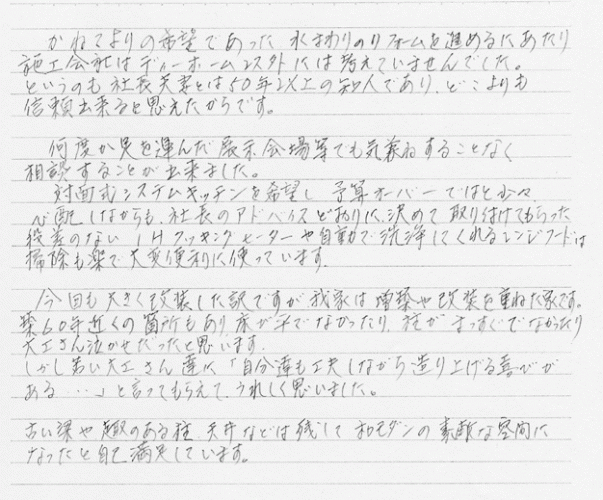 かねてよりの希望であった 水まわりのリフォームを進めるにあたり
施工会社はディーホームコスガ以外には考えていませんでした。
というのも社長夫妻とは50年以上の知人であり、どこよりも
信頼出来ると思えたからです。
何度か足を運んだ展示会場等でも気兼ねすることなく
相談することが出来ました。
対面式システムキッチンを希望し 予算オーバーではと少々
心配しながらも、社長のアドバイスどおりに決めて取り付けてもらった
段差のない IHクッキングヒーターや自動で洗浄してくれるレンジフードは
掃除も楽で大変便利に使っています。
今回も大きく改装した訳ですが我家は増築や改装を重ねた家です。
築60年近くの箇所もあり床が平でなかったり、柱がまっすぐでなかったり
大工さん泣かせだったと思います。
しかし若い大工さん達に「自分達も工夫しながら造り上げる喜びが
ある・・・」と言ってもらえて、うれしく思いました。
古い梁や趣のある柱、天井などは残して和モダンの素敵な空間に
なったと自己満足しています。